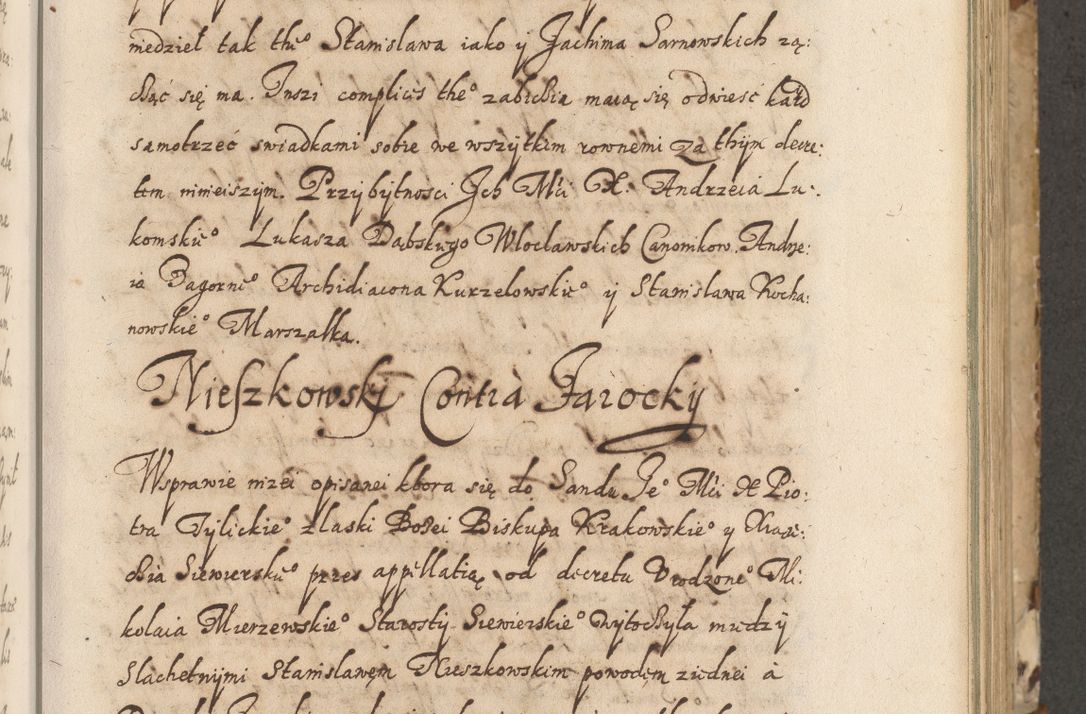 niedziel tak the° Stanislawa iako y Jachima Sarnowskich zą:
chać się ma. Inszi complicis the° zabichia maią się odwiesć każd
samotrzeć swiadkami sobie we wszytkim rownemi za thym decre:
tem ninieiszym. Przy bytnosci Ich Mći X. Andrzeia Lu:
komskie° Lukasza Dąbskiego Włocławskich Canonikow. Andrze:
ia Zagorne° Archidiacona Kurzelowskie° y Stanislawa Kocha:
nowskie° Marszałka.
Nieszkowskj Contra Jarocky
Wsprawie nizei opisanei ktora się do Sandu Je° Mći X Pio:
tra Tylickie° z laski Bozei Biskupa Krakowskie° y Xiąże:
chia Siewierskie° przes appellatią od decretu Vrodzone° Mi:
kolaia Mierzewskie° Starosty Siewierskie° wytochyla miedzy
Slachetnymi Stanislawęm Nieszkowskim powodęm ziednei à